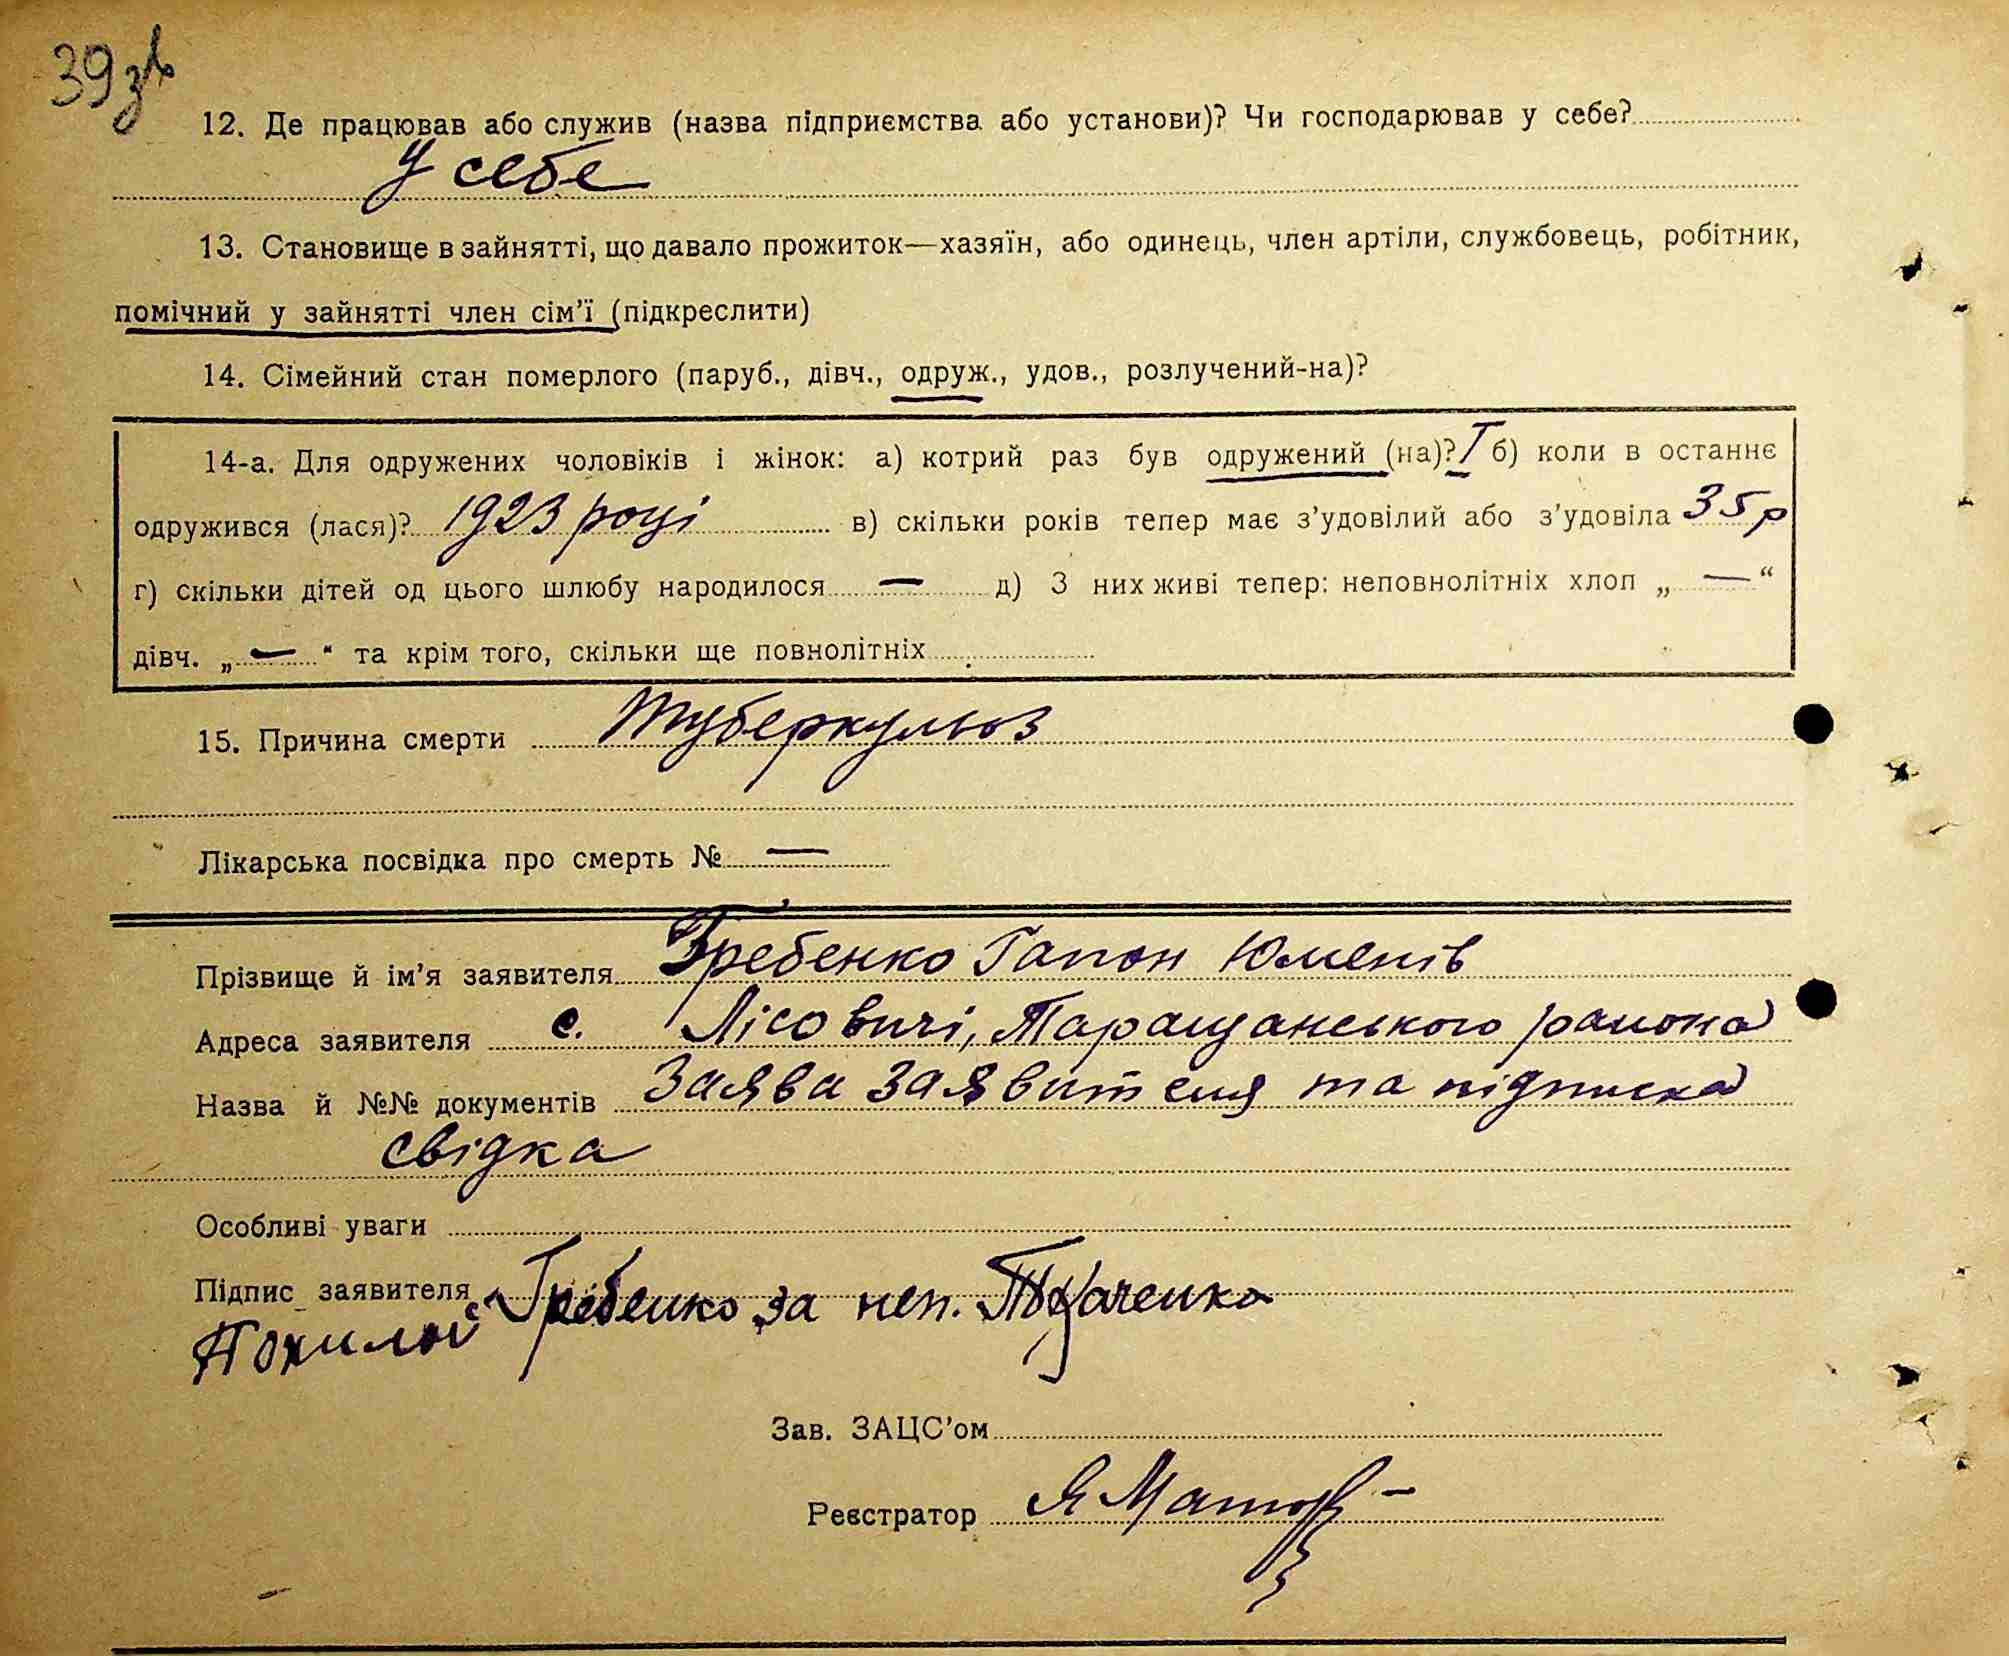 39зв
12. Де працював або служив (назва підприємства або установи)? Чи господарював у себе?
У себе
13. Становище в зайнятті, що давало прожиток—хазяїн, або одинець, член артіли, службовець, робітник,
помічний у зайнятті член сім’ї (підкреслити)
14. Сімейний стан померлого (паруб., дівч., одруж., удов., розлучений-на)?
14-а. Для одружених чоловіків і жінок: а) котрий раз був одружений (на)? I б) коли в останнє
одружився (лася)? 1923 році в) скільки років тепер має з’удовілий або з’удовіла 35 р
г) скільки дітей од цього шлюбу народилося — д) З них живі тепер: неповнолітніх хлоп „ — “
дівч. „ — “ та крім того, скільки ще повнолітніх
15. Причина смерти Туберкульоз
Лікарська посвідка про смерть № —
Прізвище й ім’я заявителя Гребенко Гапон
Адреса заявителя с. Лісовичі, Таращанського района
Назва й №№ документів Заява заявителя та підписка
свідка
Особливі уваги
Підпис заявителя Гребенко за неп. Ткаченко
Зав. ЗАЦС’ом
Реєстратор